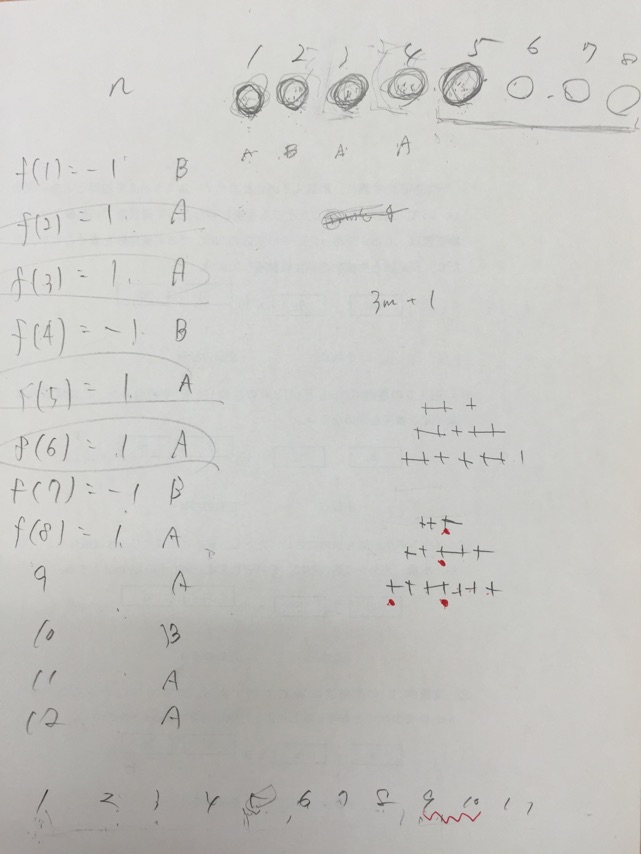 1 2 3 4 5 6 7 8
n
A B A A
f(1) = -1 B
f(2) = 1. A
f(3) = 1. A
3m + 1
f(4) = -1. B
f(5) = 1. A
f(6) = 1 A
f(7) = -1 B
f(8) = 1. A
9 A
10 B
11 A
12 A
1 2 3 4 5 6 7 8 9 10 11